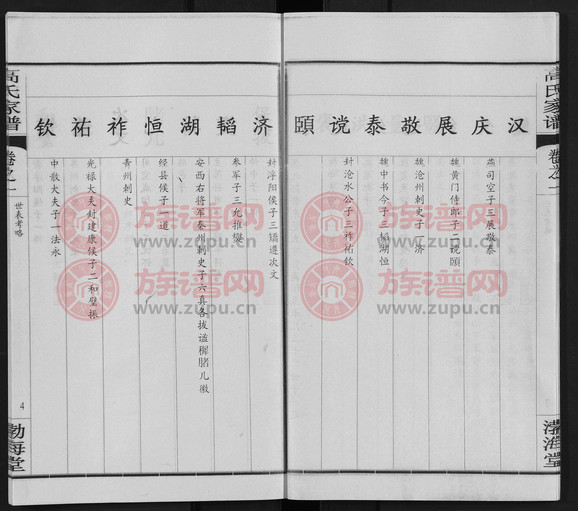 高氏家谱
卷之一
渤海堂
汉 庆 展 敬 泰 谠 頤
燕司空子三展敬泰
魏黄门侍郎子二谠頤
魏沧州刺史子一济
魏中书令子三韬湖恒
封沧水公子三祚祐钦
济 韬 湖 恒 祚 祐 钦
封浮阳侯子三矯遵次文
参军子三允推燮
安西右将军秦州刺史子六真各拔谧
经县侯子一道
青州刺史
光禄大夫封建康侯子二和璧振
中散大夫子一法永
高氏家谱
卷之一
世表考略
4
渤海堂
族谱网
www.zupu.cn
族谱网
www.zupu.cn
族谱网
www.zupu.cn
族谱网
www.zupu.cn